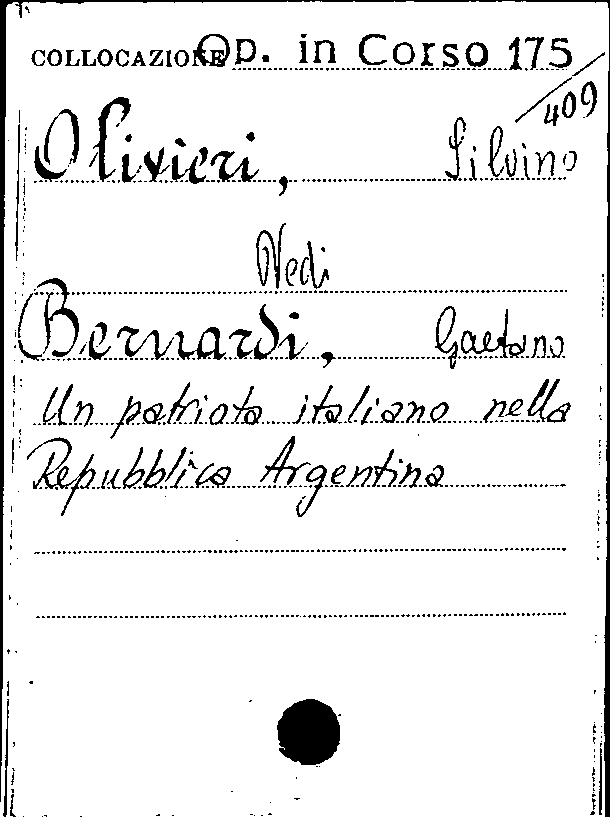 COLLOCAZIONE Op. in Corso 175
409
Olivieri, Silvino
Vedi
Bernardi, Gaetano
Un patriota italiano nella
Repubblica Argentina